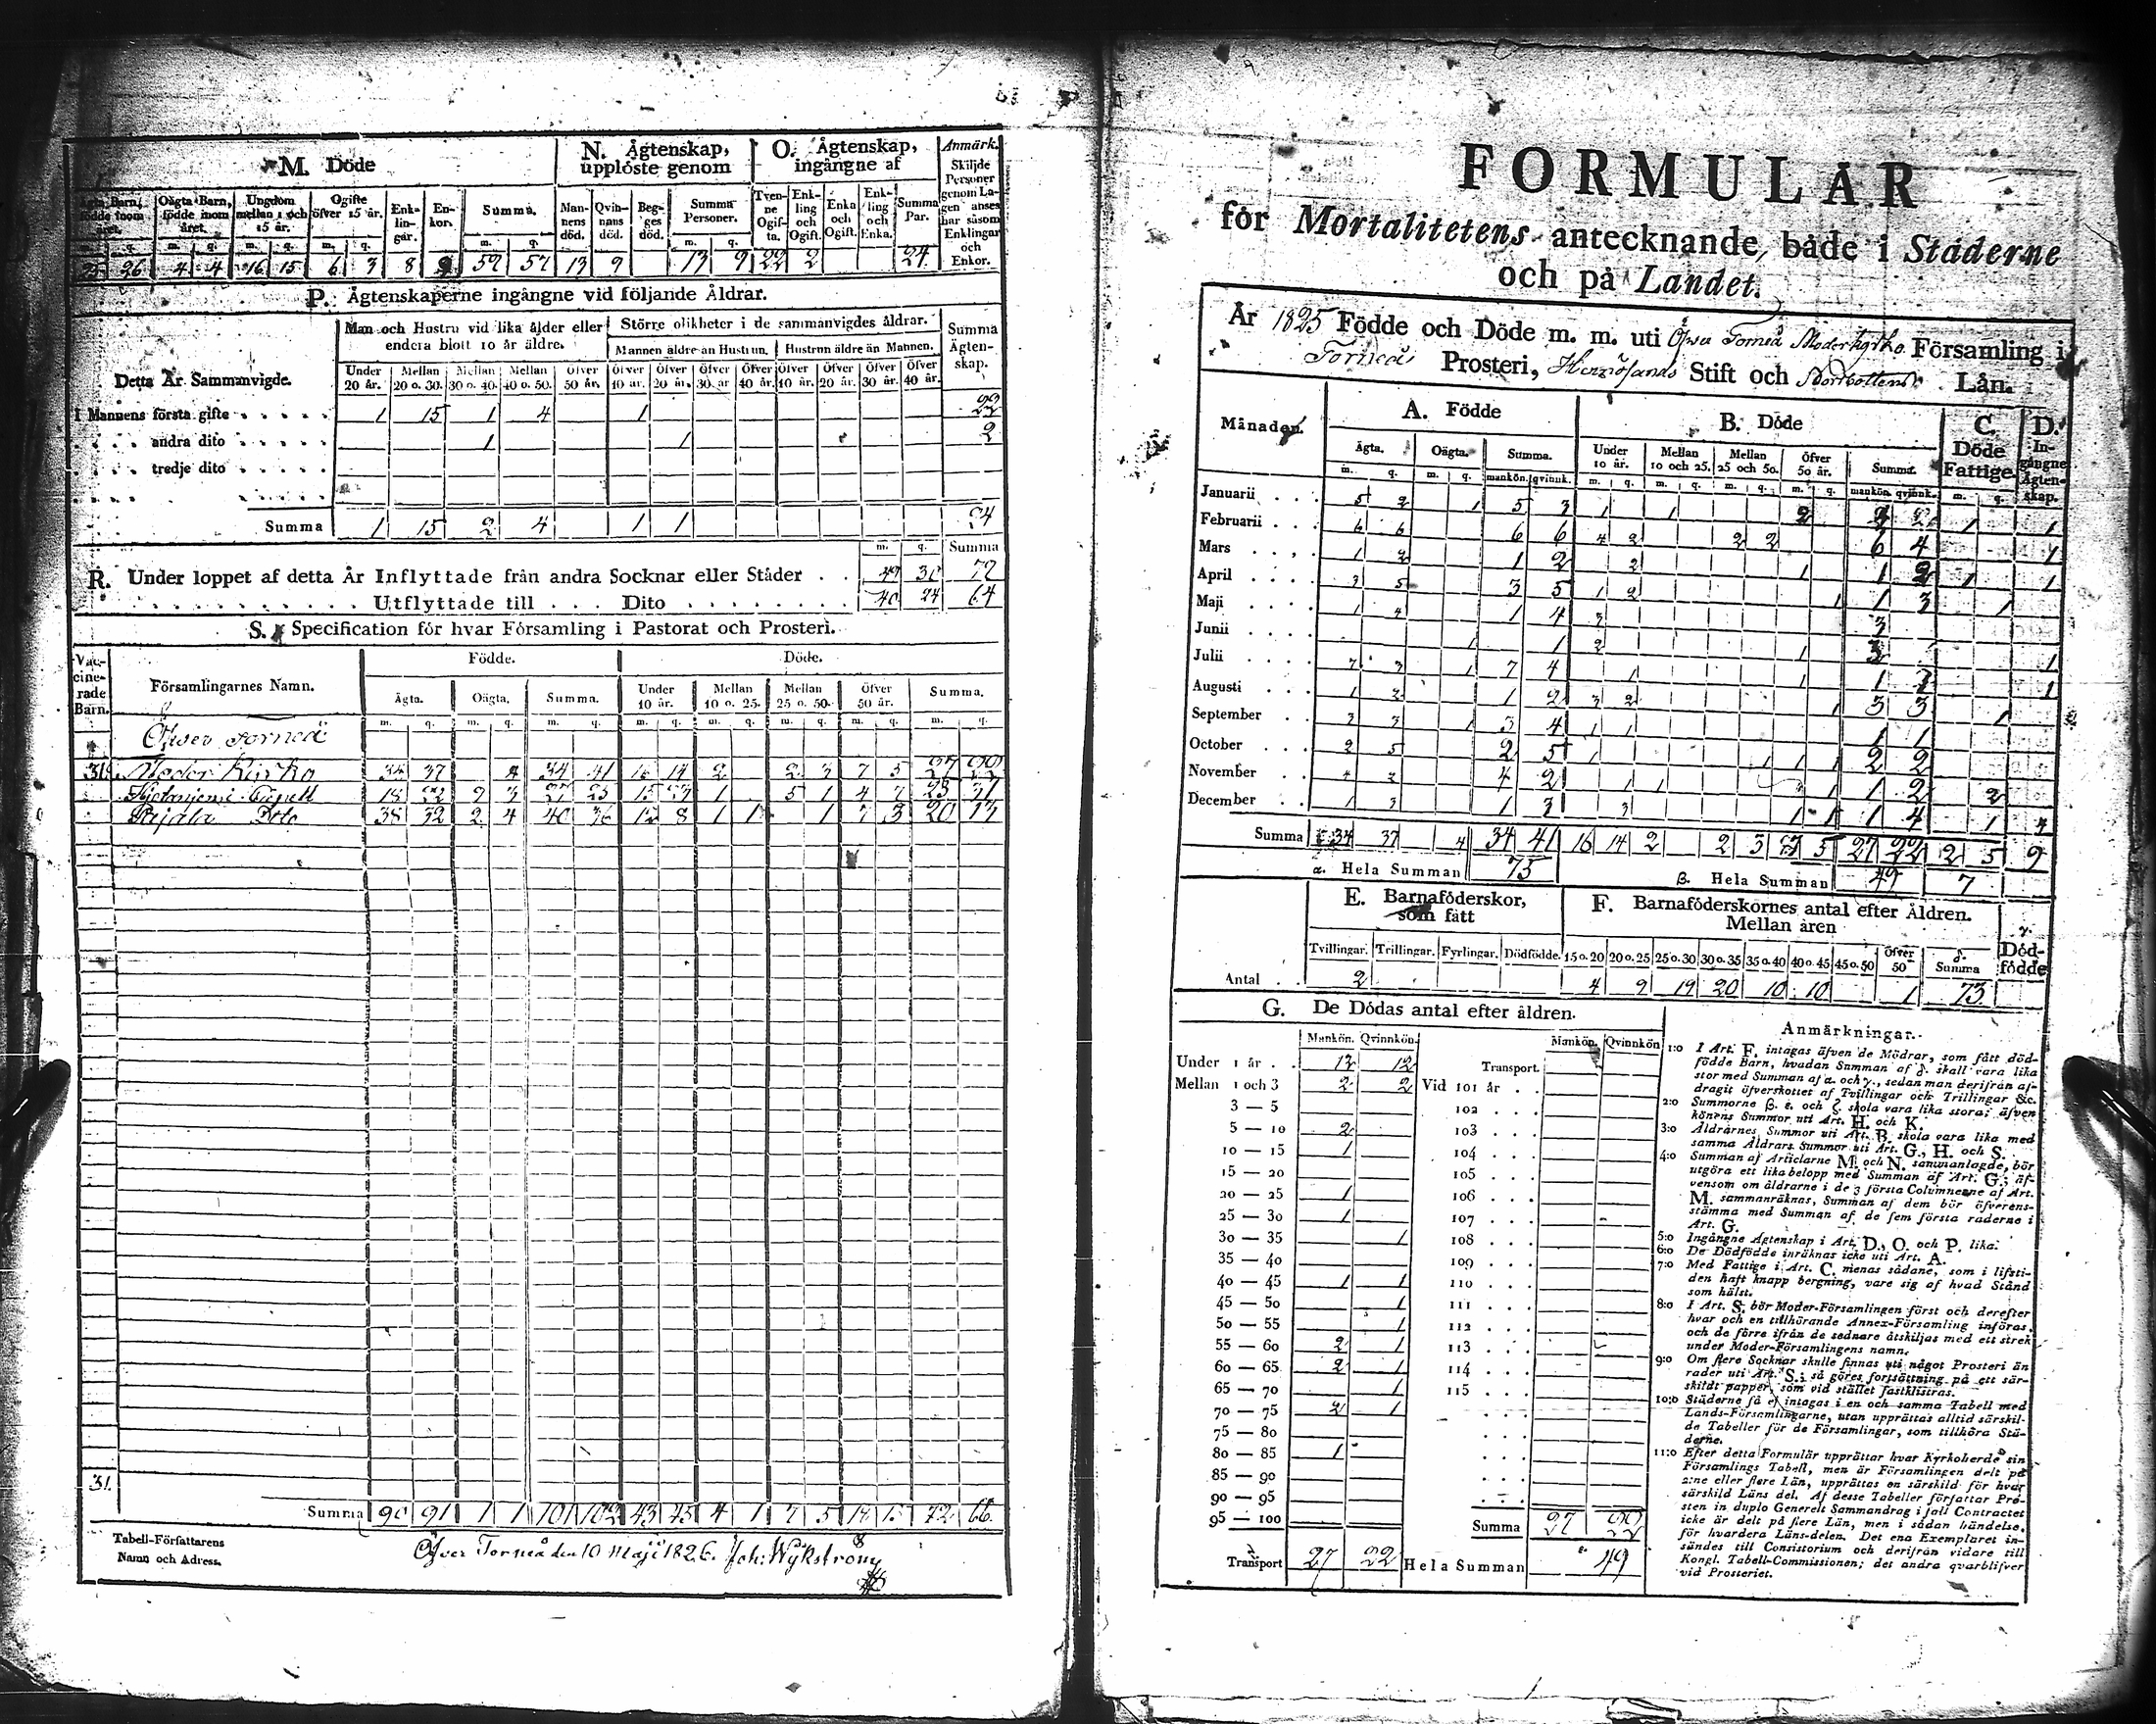 M. Döde
N. Ägtenskap, upplöste genom
O. Ägtenskap, ingångne af
Anmärk. Skiljde Personer genom Lagen anses här såsom Enklingar och Enkor.
Ägta Barn, födde inom året. Oägta Barn, födde inom året. Ungdom mellan 1 och 15 år. Ogifte öfver 15 år. Enklingar. Enkor. Summa. Mannens död. Qvinnans död. Begges död. Summa Personer. Tvenne Ogifta. Enkling och Ogift. Enka och Ogift. Enkling och Enka. Summa Par.
m. q. m. q. m. q. m. q. m. q. m. q.
26 4 4 16 15 6 3 8 9 59 57 13 9 13 9 22 2 24
P. Ägtenskaperne ingångne vid följande Åldrar.
Man och Hustru vid lika ålder eller endera blott 10 år äldre.
Större olikheter i de sammanvigdes åldrar.
Summa Ägtenskap.
Mannen äldre än Hustrun. Hustrun äldre än Mannen.
Detta År Sammanvigde.
Under 20 år. Mellan 20 o. 30. Mellan 30 o. 40. Mellan 40 o. 50. Öfver 50 år. Öfver 10 år. Öfver 20 år. Öfver 30 år Öfver 40 år. Öfver 10 år. Öfver 20 år. Öfver 30 år Öfver 40 år.
I Mannens första gifte . . . . . 1 15 1 4 1 22
. . . . andra dito . . . . . 1 1 2
. . . . tredje dito . . . . .
Summa 1 15 2 4 1 1 24
m. q. Summa
R. Under loppet af detta År Inflyttade från andra Socknar eller Städer . . 72
. . . . . . . . . . . Utflyttade till . . . Dito . . . . . . . . 40 24 64
S. Specification för hvar Församling i Pastorat och Prosteri.
Vaccinerade Barn. Församlingarnes Namn. Födde. Döde.
Ägta. Oägta. Summa. Under 10 år. Mellan 10 o. 25. Mellan 25 o. 50. Öfver 50 år. Summa.
m. q. m. q. m. q. m. q. m. q. m. q. m. q. m. q.
Öfver Torneå
31 Moder Kyrko 34 37 4 34 41 16 14 2 2 3 7 5 27 22
Capell 5 1 4
Dito 38 32 2 4 40 36 12 8 1 1 1 7 3 20 13
31
Summa 90 91 101 102 43 45 4 1 7 5 18 15 72 66
Tabell-Författarens Namn och Adress.
Öfver Torneå den 10 Maji 1826. Joh: Wykström
FORMULÄR
för Mortalitetens antecknande, både i Städerne
och på Landet.
År 1825 Födde och Döde m. m. uti Öfver Torneå Moderkyrko Församling i
Torneå Prosteri, Hernösands Stift och Norrbottens Län.
Månader. A. Födde B. Döde C. Döde Fattige. D. Ingångne Ägtenskap.
Ägta. Oägta. Summa. Under 10 år. Mellan 10 och 25. Mellan 25 och 50. Öfver 50 år. Summa.
m. q. m. q. mankön. qvinnk. m. q. m. q. m. q. m. q. mankön. qvinnk. m. q.
Januarii . . . 5 2 1 5 3 1 1 2
Februarii . . . 6 6 6 6 4 2 2 2 6 4
Mars . . . 1 2 1 2 2 1 1 2
April . . . 3 5 3 5 1 2 1 1 3
Maji . . . 1 4 1 4 3 3
Junii . . . 1 1 2 1 3
Julii . . . 7 3 1 7 4 1 1 1
Augusti . . . 1 2 1 2 3 2 1 3 3
September . . . 3 3 1 3 4 1 1 1 1
October . . . 2 5 2 5 1 1 1 1 2 2
November . . . 4 2 4 2 1 1 1 1 2
December . . . 1 3 1 3 3 1 1 1 4
Summa 34 37 4 34 41 16 14 2 2 3 7 5 27 22 2 5 9
α. Hela Summan 75 β. Hela Summan 49 7
E. Barnaföderskor, som fått
F. Barnaföderskornes antal efter Åldren. Mellan åren
γ. Dödfödde
Tvillingar. Trillingar. Fyrlingar. Dödfödde. 15 o. 20 20 o. 25 25 o. 30 30 o. 35 35 o. 40 40 o. 45 45 o. 50 Öfver 50 δ. Summa
Antal . . 2 4 9 19 20 10 10 1 73
G. De Dödas antal efter åldren.
Mankön. Qvinnkön. Mankön. Qvinnkön
Under 1 år . . 13 12 Transport.
Mellan 1 och 3 2 2 Vid 101 år . .
3 — 5 102 . . .
5 — 10 2 103 . . .
10 — 15 1 104 . . .
15 — 20 105 . . .
20 — 25 1 106 . . .
25 — 30 1 107 . . .
30 — 35 1 108 . . .
35 — 40 109 . . .
40 — 45 1 1 110 . . .
45 — 50 1 111 . . .
50 — 55 1 112 . . .
55 — 60 2 1 113 . . .
60 — 65 2 1 114 . . .
65 — 70 1 115 . . .
70 — 75 2 1
75 — 80
80 — 85 1
85 — 90
90 — 95
95 — 100 Summa 27 22
Transport 27 22 Hela Summan 49
Anmärkningar.
1:o I Art. F. intagas äfven de Mödrar, som fått dödfödde Barn, hvadan Summan af δ. skall vara lika
stor med Summan af α. och γ., sedan man derifrån afdragit öfverskottet af Tvillingar och Trillingar &c.
2:o Summorne β. ε. och ζ. skola vara lika stora; äfven könens Summor uti Art. H. och K.
3:o Åldrarnes Summor uti Art. B. skola vara lika med samma Åldrars Summor uti Art. G., H. och S.
4:o Summan af Articlarne M. och N. sammanlagde, bör utgöra ett lika belopp med Summan af Art. G.; äfvensom om åldrarne i de 3 första Columnerne af Art.
M. sammanräknas, Summan af dem bör öfverensstämma med Summan af de fem första raderne i Art. G.
5:o Ingångne Ägtenskap i Art. D., O. och P. lika.
6:o De Dödfödde inräknas icke uti Art. A.
7:o Med Fattige i Art. C. menas sådane, som i lifstiden haft knapp bergning, vare sig af hvad Stånd som hälst.
8:o I Art. S. bör Moder-Församlingen först och derefter hvar och en tillhörande Annex-Församling införas, och de förre ifrån de sednare åtskiljas med ett strek under Moder-Församlingens namn.
9:o Om flere Socknar skulle finnas uti något Prosteri än rader uti Art. S.; så göres fortsättning på ett särskildt papper, som vid stället fastklistras.
10:o Städerne få ej intagas i en och samma Tabell med Lands-Församlingarne, utan upprättas alltid särskilde Tabeller för de Församlingar, som tillhöra Städerne.
11:o Efter detta Formulär upprättar hvar Kyrkoherde sin Församlings Tabell, men är Församlingen delt på 2:ne eller flere Län, upprättas en särskild för hvar särskild Läns del. Af desse Tabeller författar Prosten in duplo Generelt Sammandrag i fall Contractet icke är delt på flere Län, men i sådan händelse, för hvardera Läns-delen. Det ena Exemplaret insändes till Consistorium och derifrån vidare till Kongl. Tabell-Commissionen; det andra qvarblifver vid Prosteriet.